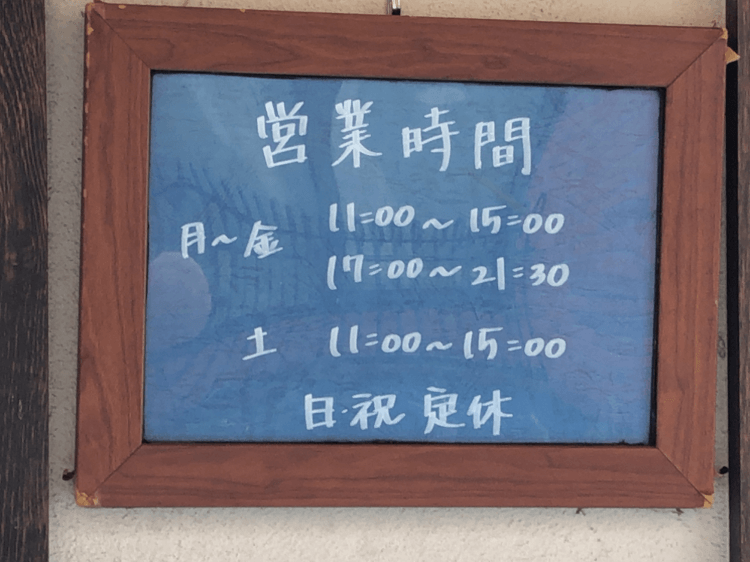 営業時間
月～金 11:00～15:00
17:00～21:30
土 11:00～15:00
日・祝 定休